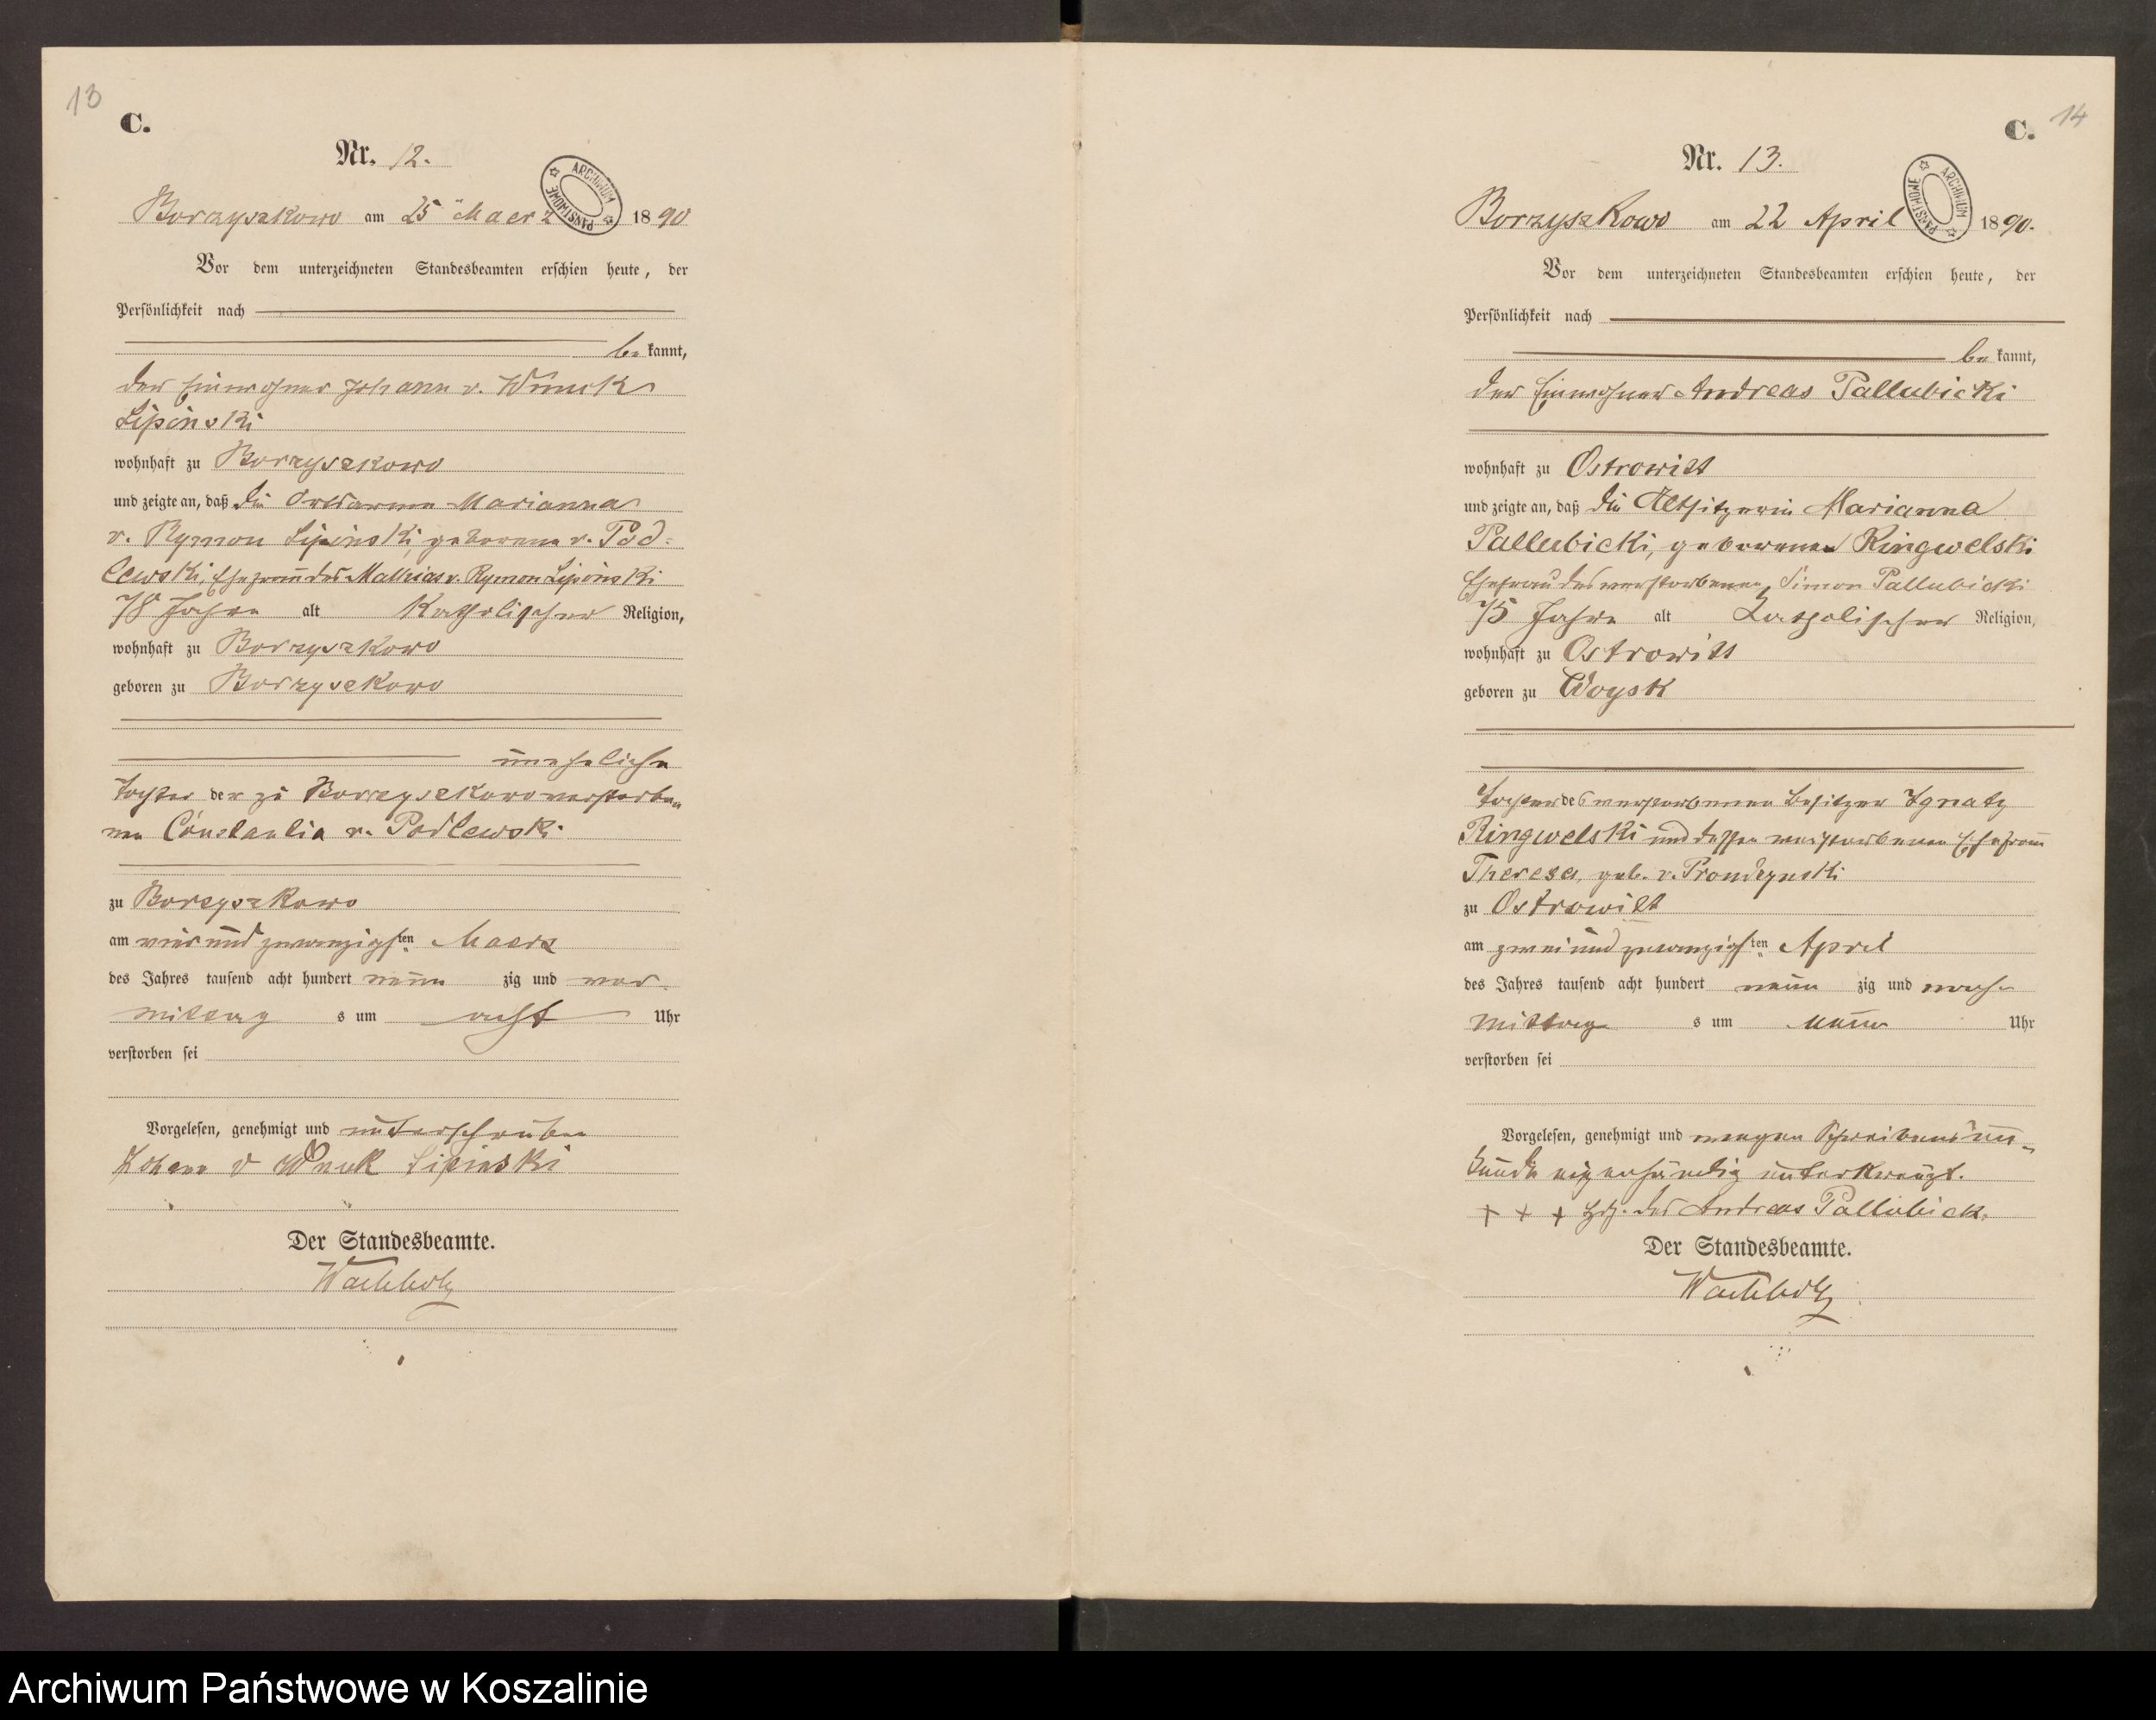 13
C.
Nr. 12.
ARCHIWUM PAŃSTWOWE
Borzyszkowo am 25 Maerz 1890
Vor dem unterzeichneten Standesbeamten erschien heute, der
Persönlichkeit nach
be kannt,
der Einwohner Johann v. Wnuck
Lipinski
wohnhaft zu Borzyszkowo
und zeigte an, daß die Ortsarme Marianna
v. Rymon Lipinski, geborene v. Pod-
lewski, Ehefrau des Mathias v. Rymon Lipinski
78 Jahre alt Katholischer Religion,
wohnhaft zu Borzyszkowo
geboren zu Borzyszkowo
uneheliche
Tochter der zu Borzyszkowo verstorbe-
nen Constantia v. Podlewski
zu Borzyszkowo
am vier und zwanzigsten Maerz
des Jahres tausend acht hundert neun zig und vor
mittag s um acht Uhr
verstorben sei
Vorgelesen, genehmigt und unterschrieben
Johann v Wnuk Lipinski
Der Standesbeamte.
Wachholz
14
C.
Nr. 13.
ARCHIWUM PAŃSTWOWE
Borzyszkowo am 22 April 1890.
Vor dem unterzeichneten Standesbeamten erschien heute, der
Persönlichkeit nach
be kannt,
der Einwohner Andreas Pallubicki
wohnhaft zu Ostrowitt
und zeigte an, daß die Altsitzerin Marianna
Pallubicki, geborenen Ringwelski
Ehefrau des verstorbenen Simon Pallubicki
75 Jahre alt Katholischer Religion,
wohnhaft zu Ostrowitt
geboren zu Woysk
Tochter des verstorbenen Besitzer Ignatz
Ringwelski und dessen verstorbenen Ehefrau
Theresa, geb. v. Prondzynski
zu Ostrowitt
am zwei und zwanzigsten April
des Jahres tausend acht hundert neun zig und nach
mittag s um neun Uhr
verstorben sei
Vorgelesen, genehmigt und wegen Schreibensun-
kunde eigenhändig unterkreuzt.
+ + + Hdz. des Andreas Pallubicki
Der Standesbeamte.
Wachholz
Archiwum Państwowe w Koszalinie